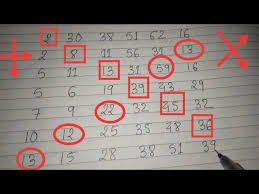 2 30 38 51 62 16
2 8 11 56 31 13
5 11 13 31 59 16
5 6 19 39 43 29
7 9 22 32 45 32
10 12 25 35 48 36
13 15 28 38 51 39